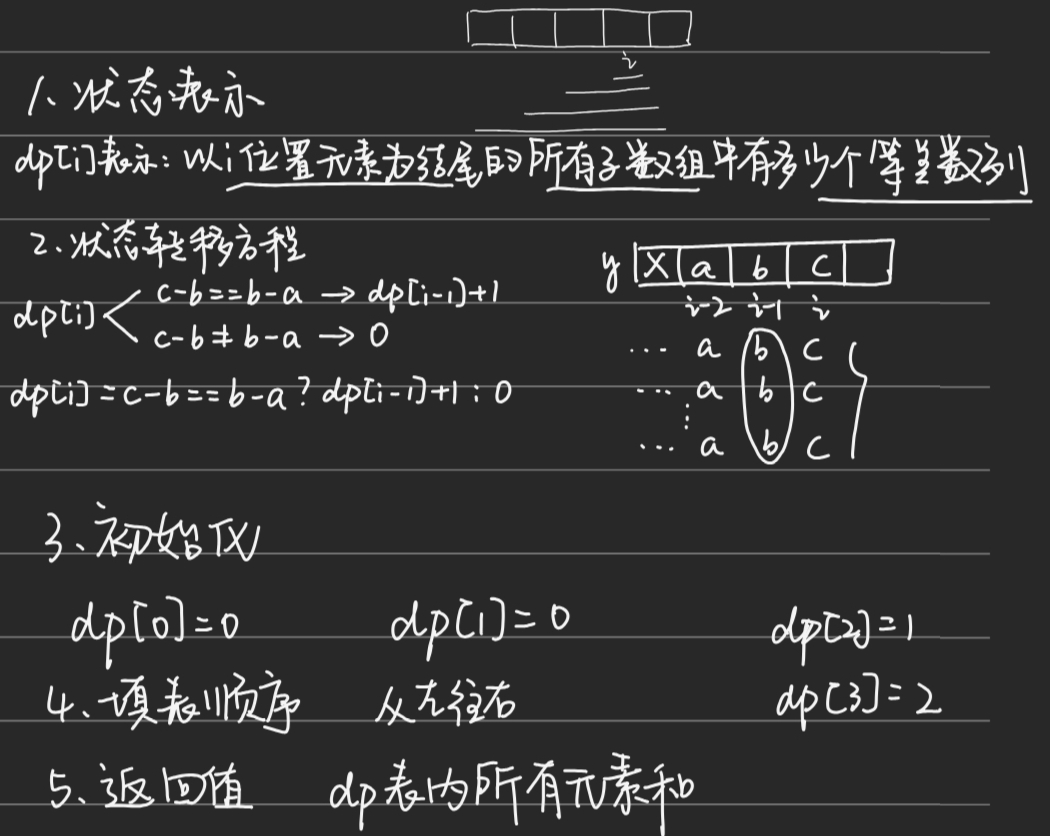 i
1、状态表示
dp[i]表示：以i位置元素为结尾的所有子数组中有多少个等差数列
2.状态转移方程
y X a b c
i-2 i-1 i
dp[i] c-b==b-a → dp[i-1]+1
c-b≠b-a → 0
... a b c
dp[i]=c-b==b-a?dp[i-1]+1:0
... a b c
⋮
... a b c
3、初始化
dp[0]=0 dp[1]=0 dp[2]=1
4、填表顺序 从左往右 dp[3]=2
5、返回值 dp表内所有元素和